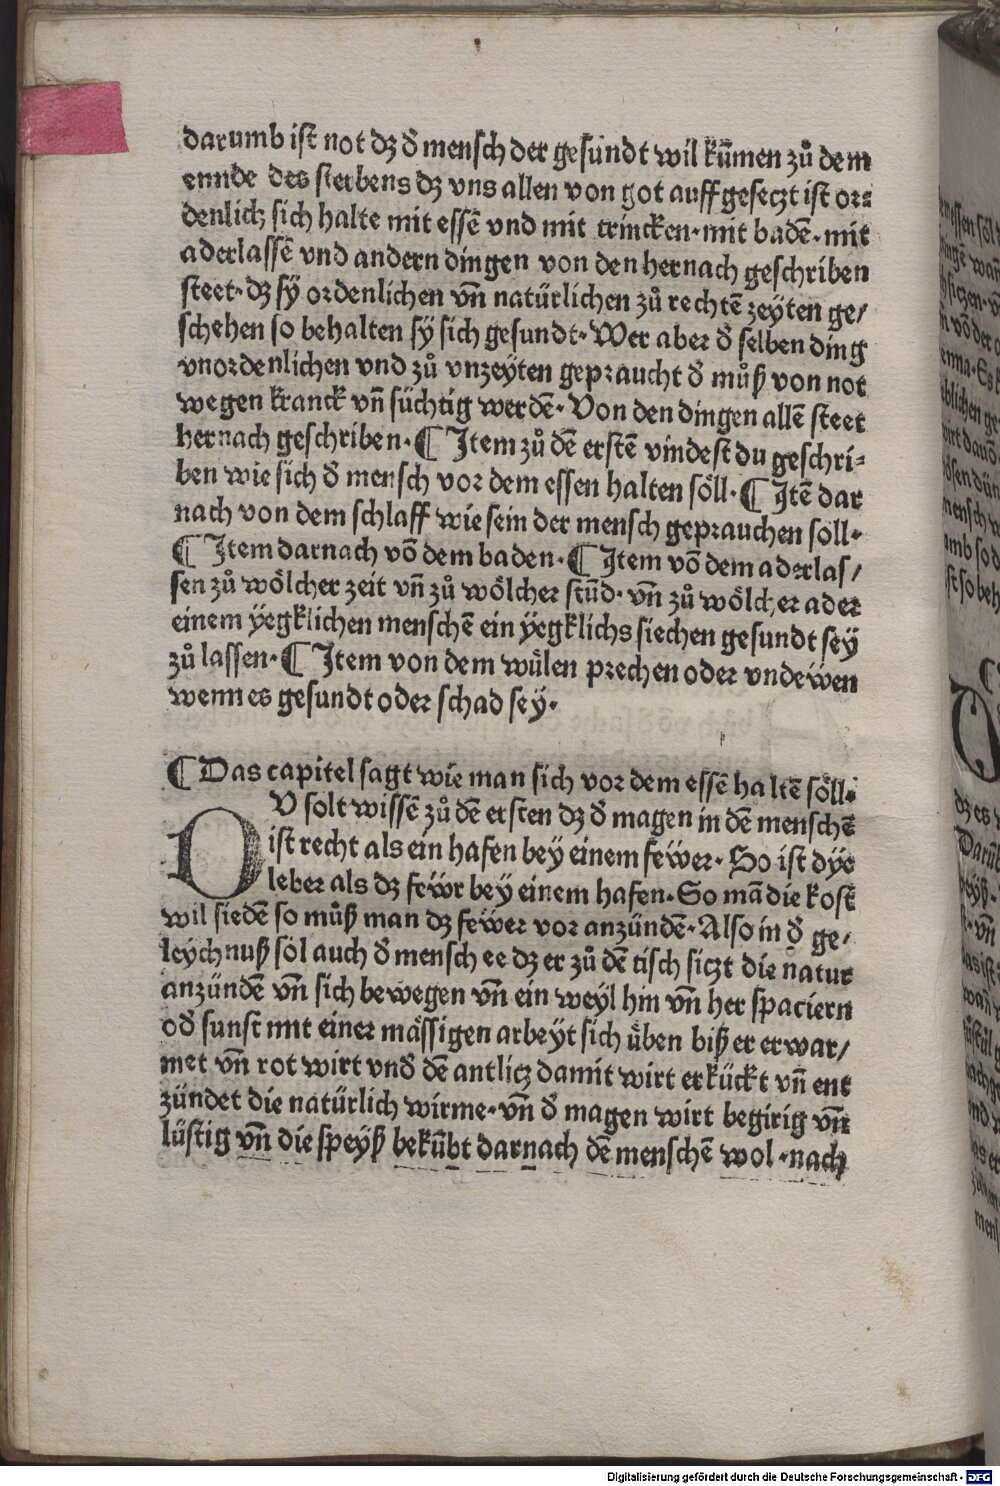 darumb ist not dz d̕ mensch der gesundt wil kūmen zů dem
ennde des sterbens dz vns allen von got auffgeseczt ist or⸗
denlich sich halte mit essē vnd mit trincken· mit badē· mit
aderlassē vnd andern dingen von den hernach geschriben
steet· dz sÿ ordenlichen vn̄ natürlichen zů rechtē zeyten ge/
schehen so behalten sÿ sich gesundt· Wer aber d̕ selben ding
vnordenlichen vnd zů vnzeÿten gepraucht d̕ můß von not
wegen kranck vn̄ süchtig werdē· Von den dingen allē steet
hernach geschriben· ¶ Item zů dē erstē vindest du geschri⸗
ben wie sich d̕ mensch vor dem essen halten söll· ¶ Itē dar
nach von dem schlaff wie sein der mensch geprauchen soll·
¶ Item darnach vō dem baden· ¶ Item vō dem aderlas/
sen zů wölcher zeit vn̄ zů wölcher stūd· vn̄ zů wölcher ader
einem ÿegklichen menschē ein ÿegklichs siechen gesundt seÿ
zů lassen· ¶ Item von dem wůlen prechen oder vndewen
wenn es gesundt oder schad seÿ·
¶ Das capitel sagt wie man sich vor dem essē haltē söll·
DV solt wissē zů dē ersten dz d̕ magen in dē menschē
ist recht als ein hafen bey einem fewer· So ist dÿe
leber als dz fewr beÿ einem hafen· So mā die kost
wil siedē so můß man dz fewer vor anzündē· Also in d̕ ge/
leÿchnuß sol auch d̕ mensch ee dz er zů dē tisch siczt die natur
anzündē vn̄ sich bewegen vn̄ ein weÿl hin vn̄ her spaciern
od̕ sunst mit einer mässigen arbeÿt sich ůben biß er erwar/
met vn̄ rot wirt vnd̕ dē antlicz damit wirt erkückt vn̄ ent
zündet die natürlich wirme· vn̄ d̕ magen wirt begirig vn̄
lüstig vn̄ die speÿß bekūbt darnach dē menschē wol· nach
Digitalisierung gefördert durch die Deutsche Forschungsgemeinschaft - DFG